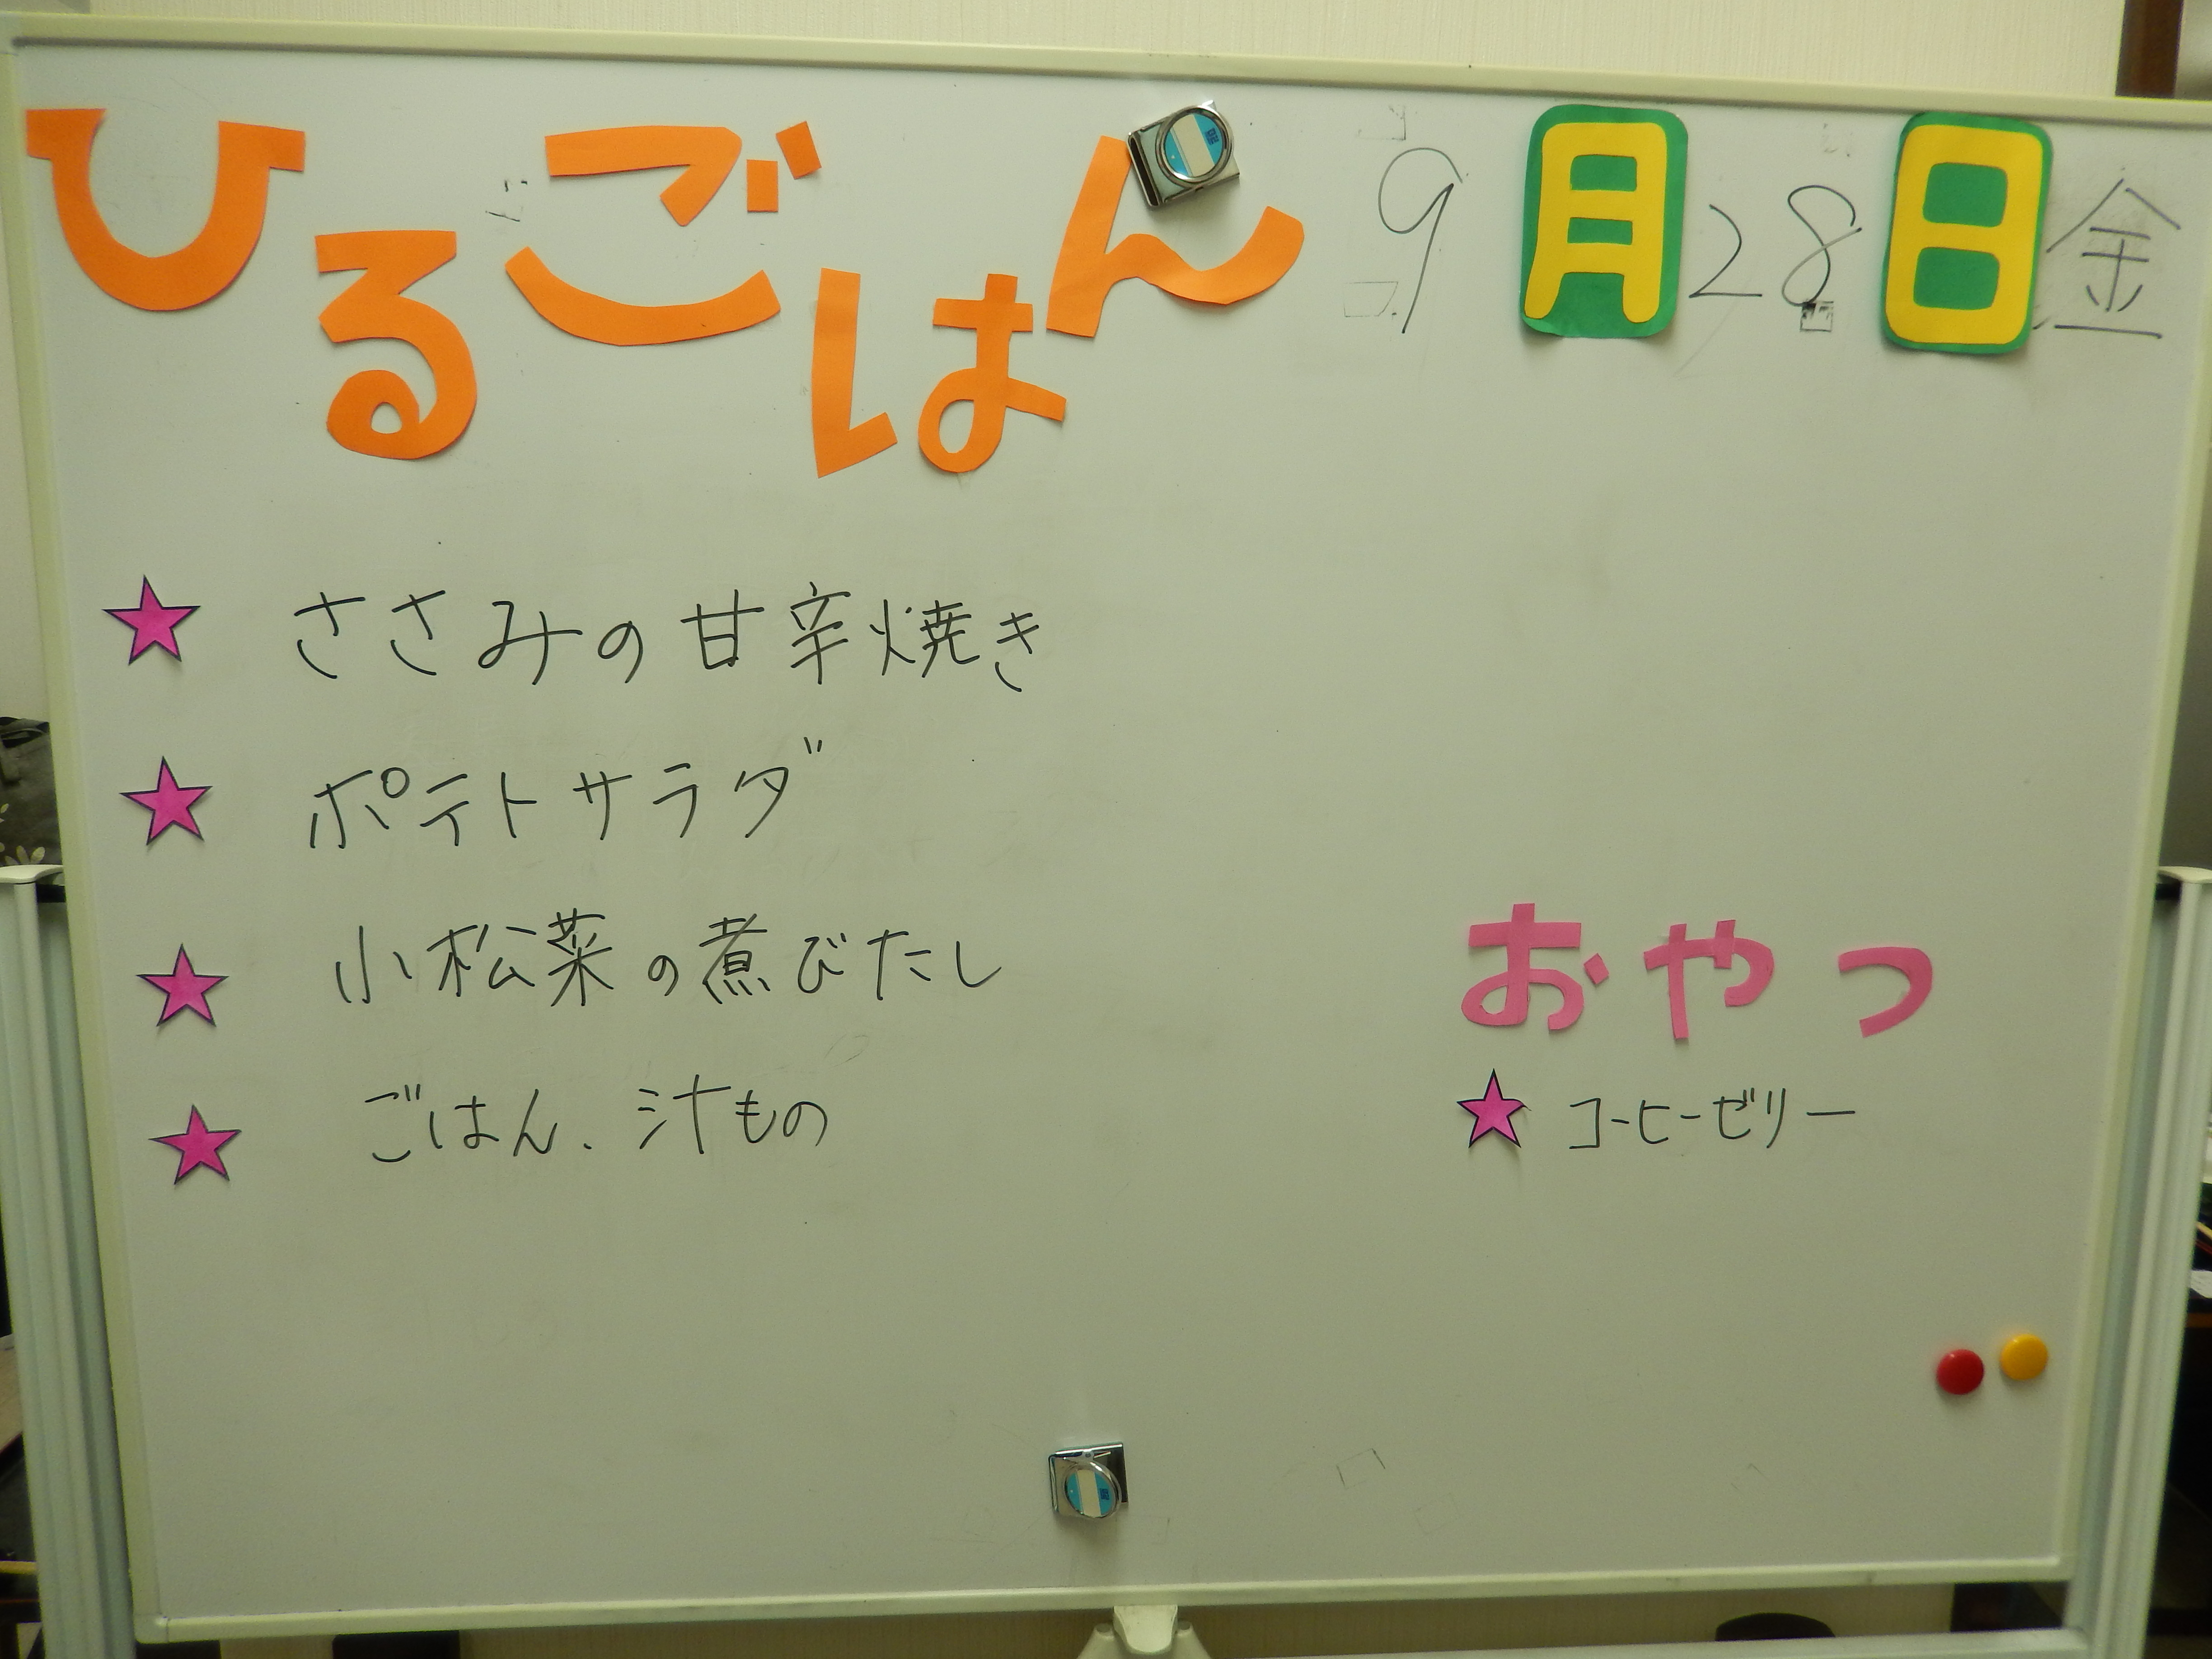 ひるごはん 9月28日 金
ささみの甘辛焼き
ポテトサラダ
小松菜の煮びたし
ごはん、汁もの
おやつ
コーヒーゼリー